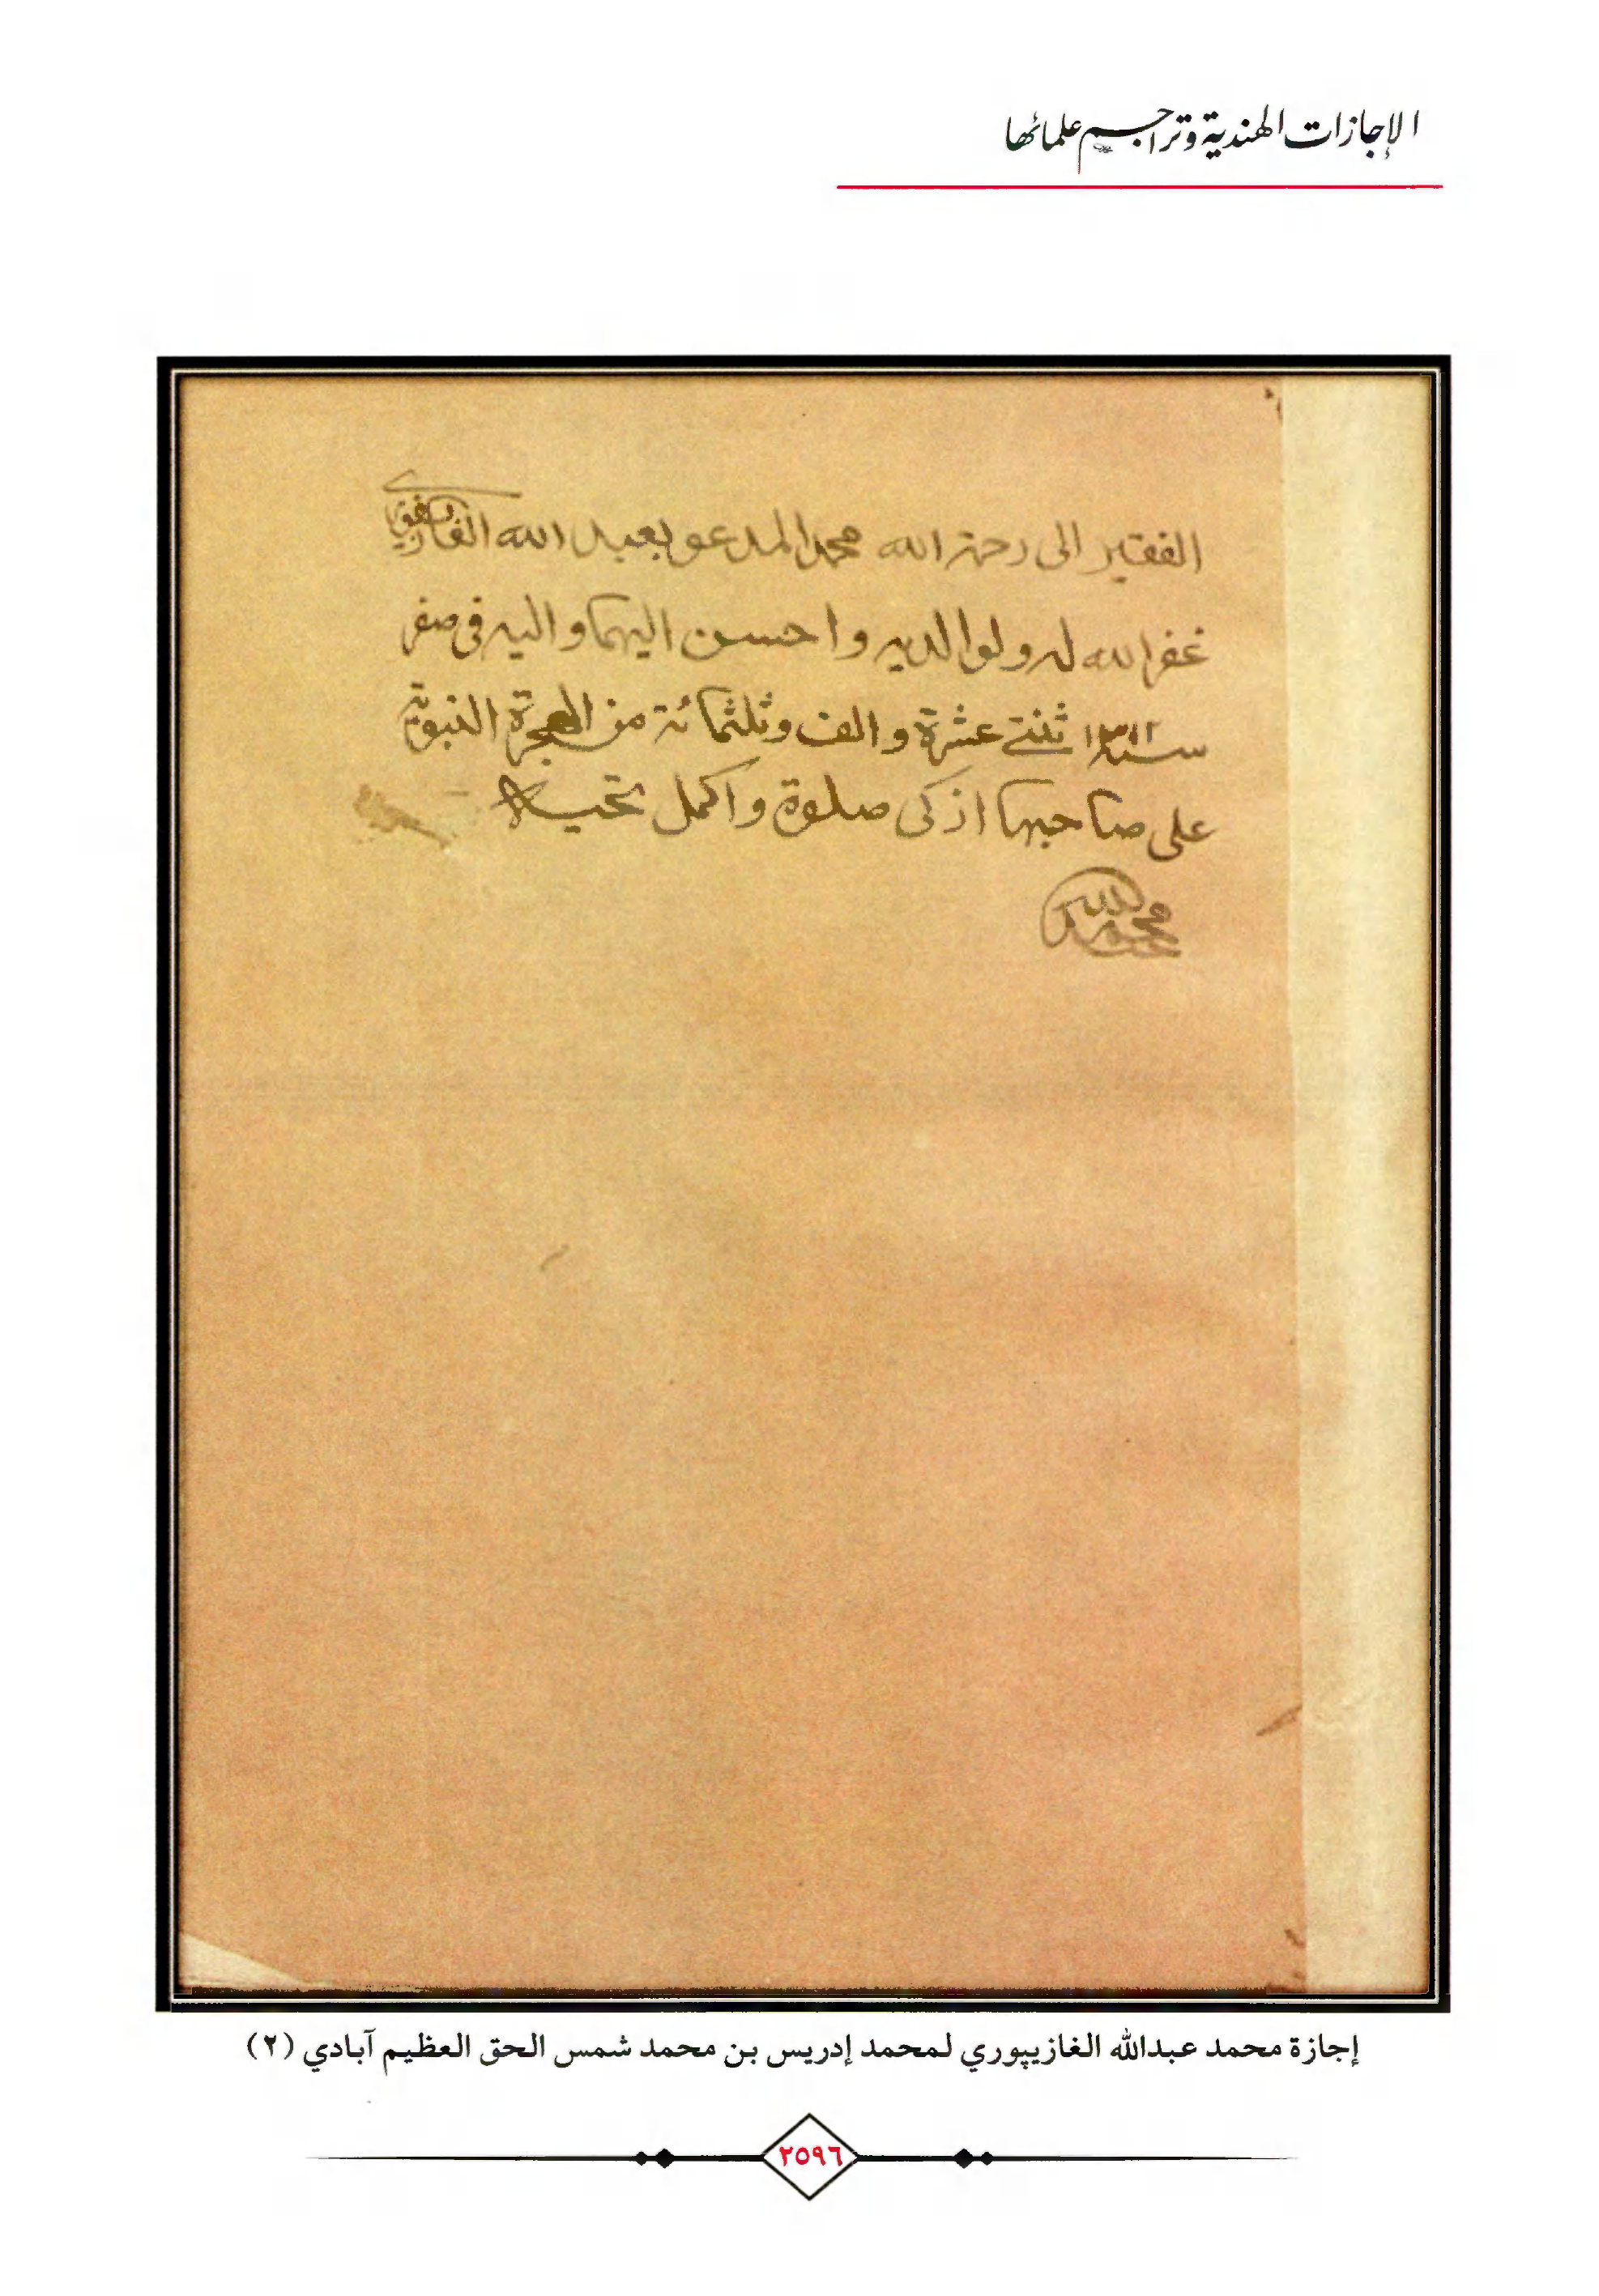 الإجازات الهندية وتراجم علمائها
الفقير الى رحمة الله محمد المدعو بعبد الله الغازيفوري
غفر الله له ولوالديه واحسن اليهما واليه فى صفر
سنة ١٣١٢ ثنتى عشرة والف وثلثمائة من الهجرة النبوية
على صاحبها ازكى صلوة واكمل تحية
محمد عبد الله
إجازة محمد عبدالله الغازيپوري لمحمد إدريس بن محمد شمس الحق العظيم آبادي (٢)
٢٥٩٦